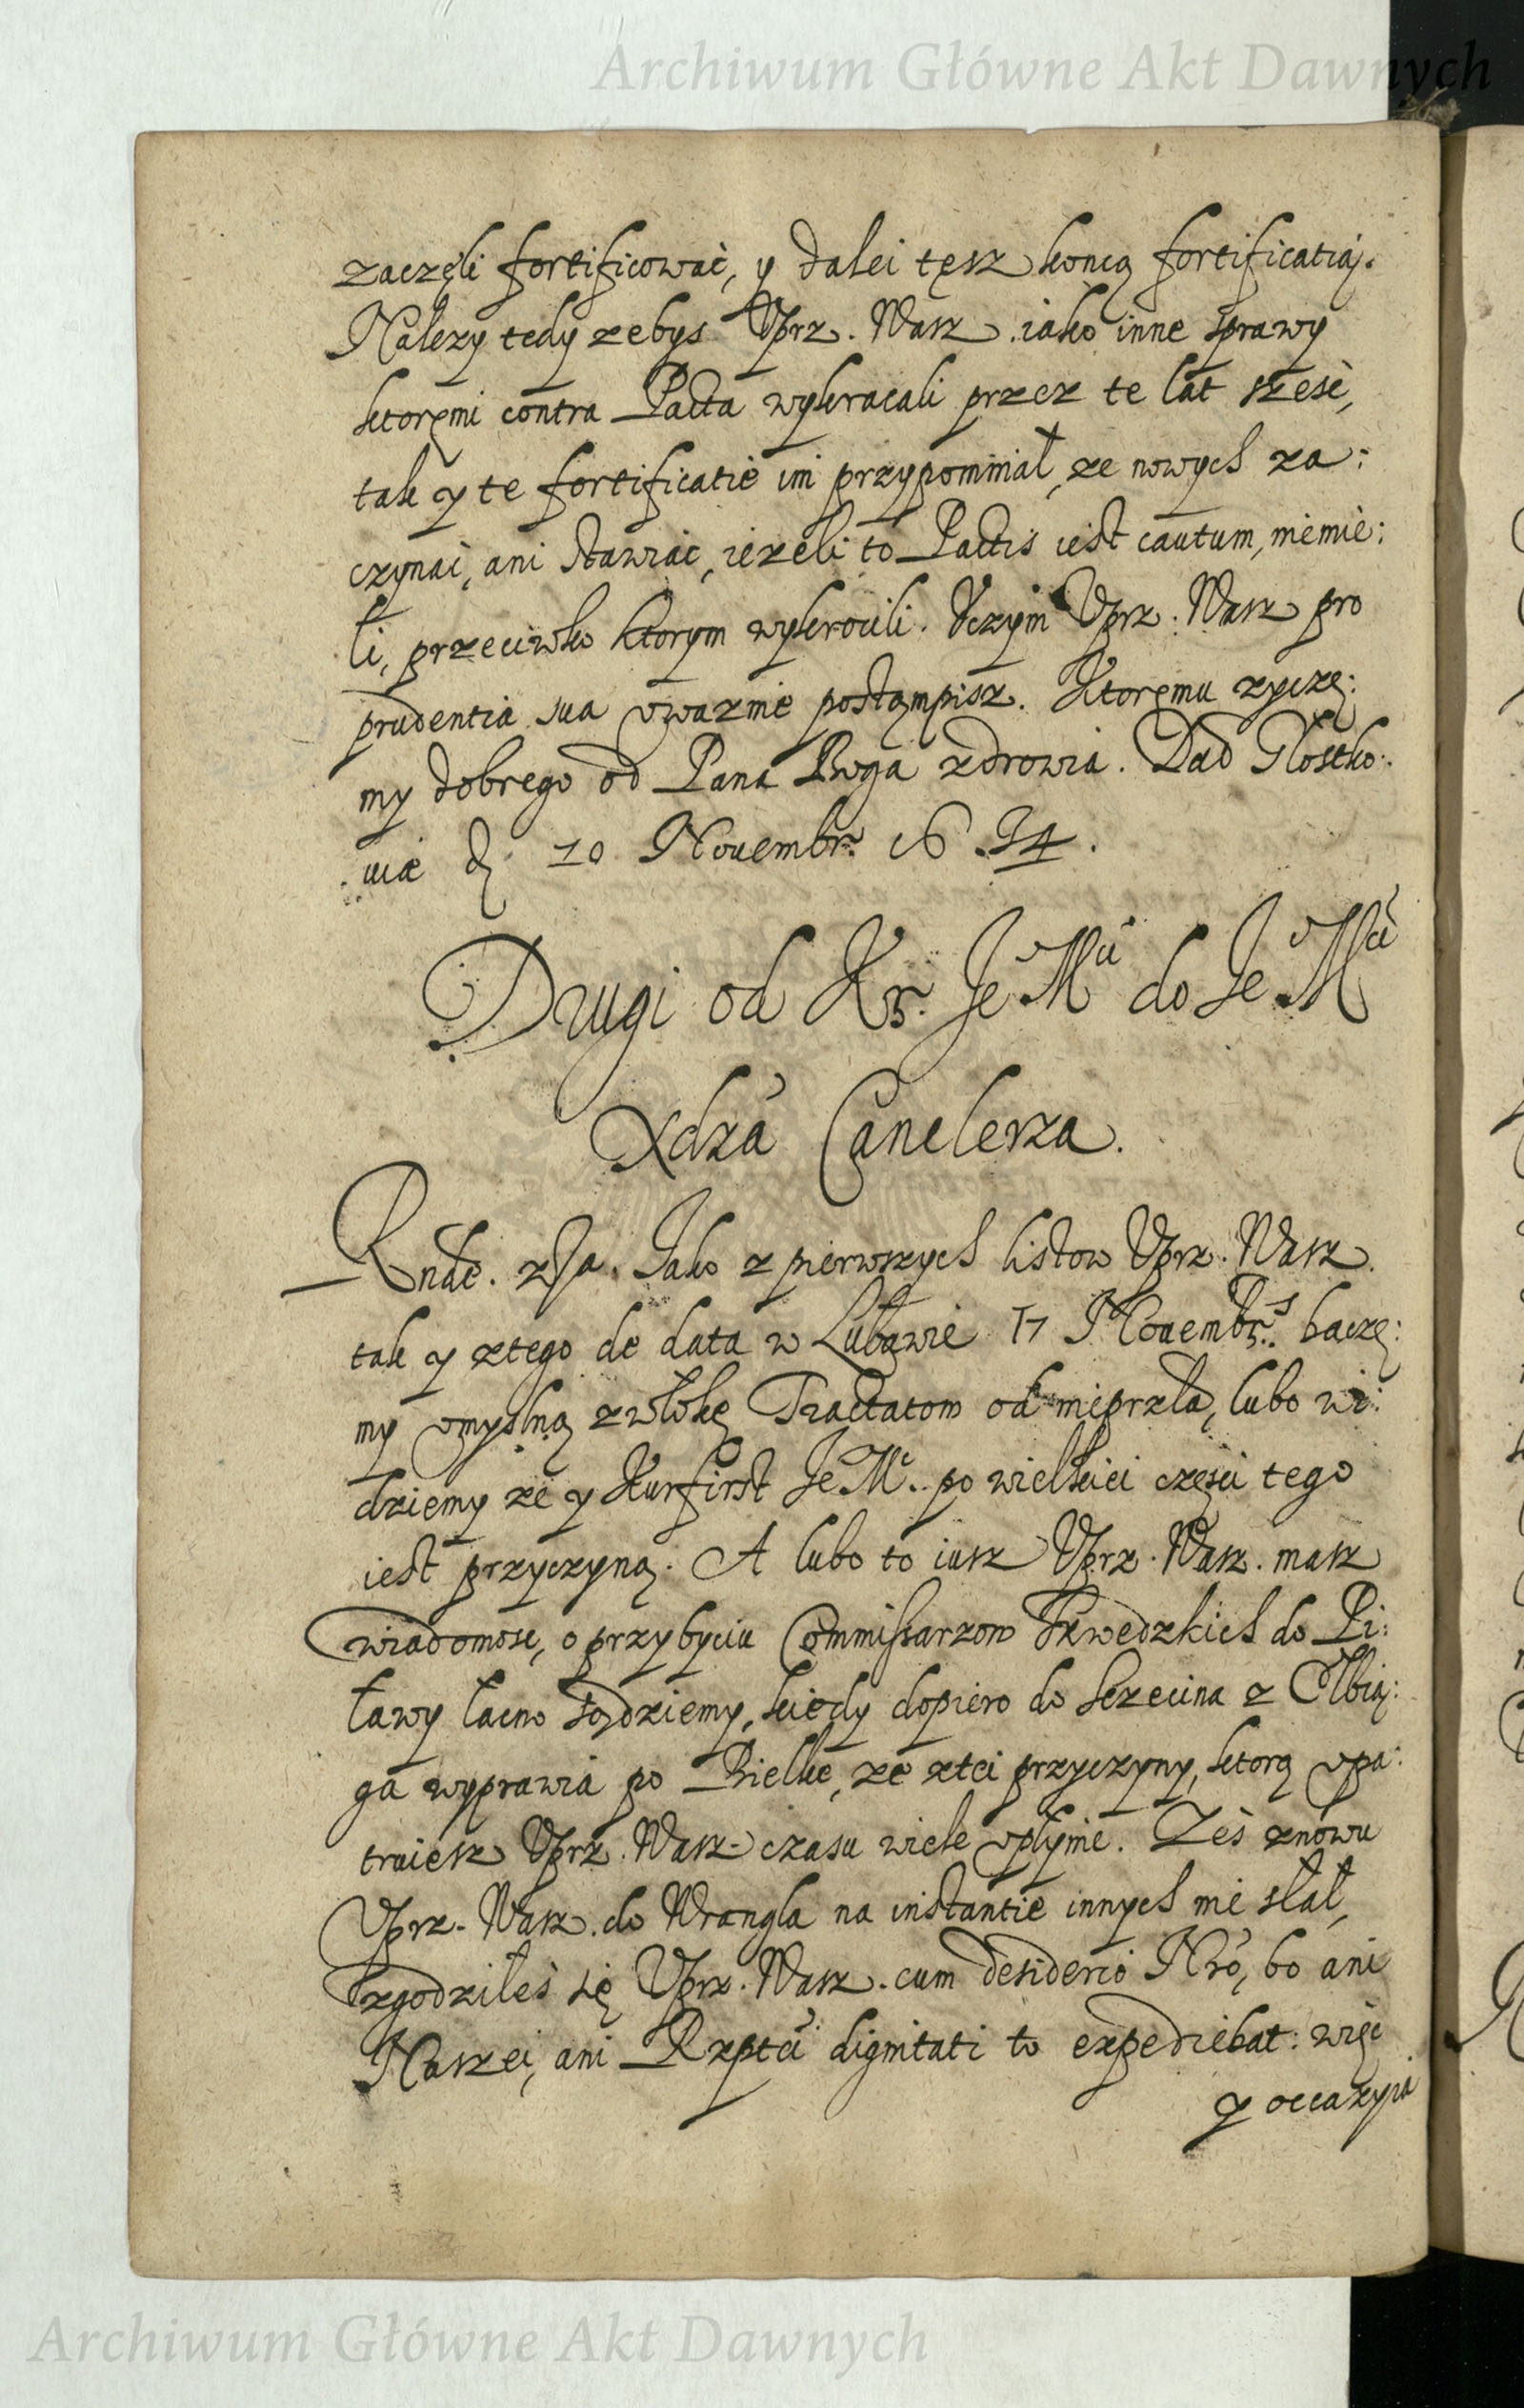 Archiwum Główne Akt Dawnych
zaczęli fortificować, y dalei tesz koncą fortificatią.
Nalezy tedy zebys Uprz. Wasz. iako inne sprawy
ktoremi contra Pacta wykracali przez te lat szesć,
tak y te fortificatie im przypominał, ze nowych za:
czynać, ani stawiać, iezeli to Pactis iest cautum, niemie:
li, przeciwko ktorym wykrocili. Wczym Uprz. Wasz pro
prudentia sua uwaznie postąmpisz. Ktoremu zycze:
my dobrego od Pana Boga zdrowia. Dad
wie d. 10 Novembr. 16 34.
Drugi od Kr. Je Mci do Je Mci
Xdza Canclerza.
Rnde. Jako z pierwszych listow Uprz. Wasz.
tak y ztego de data w Lubawie 17 Novembrs. bacze:
my umyslną zwłokę Tractatom od nieprzła, lubo wi:
dziemy ze y Kurfirst Je Mc. po wielkiei części tego
iest przyczyną. A lubo to iusz Uprz. Wasz. masz
wiadomosc, o przybyciu Commissarzow Szwedzkich do Pi:
ławy łacno sądziemy, kiedy dopiero do Sczecina z Elbią:
ga wyprawia po Bielke, ze ztei przyczyny, ktorą upa:
truiesz Uprz. Wasz. czasu wiele upłynie. Zes znowu
Uprz. Wasz. do Wrangla na instantie innych nie słał,
zgodziłes się Uprz. Wasz. cum desiderio Nro, bo ani
Naszei, ani Rzptei dignitati to expediebat: więc
y occazyia
Archiwum Główne Akt Dawnych